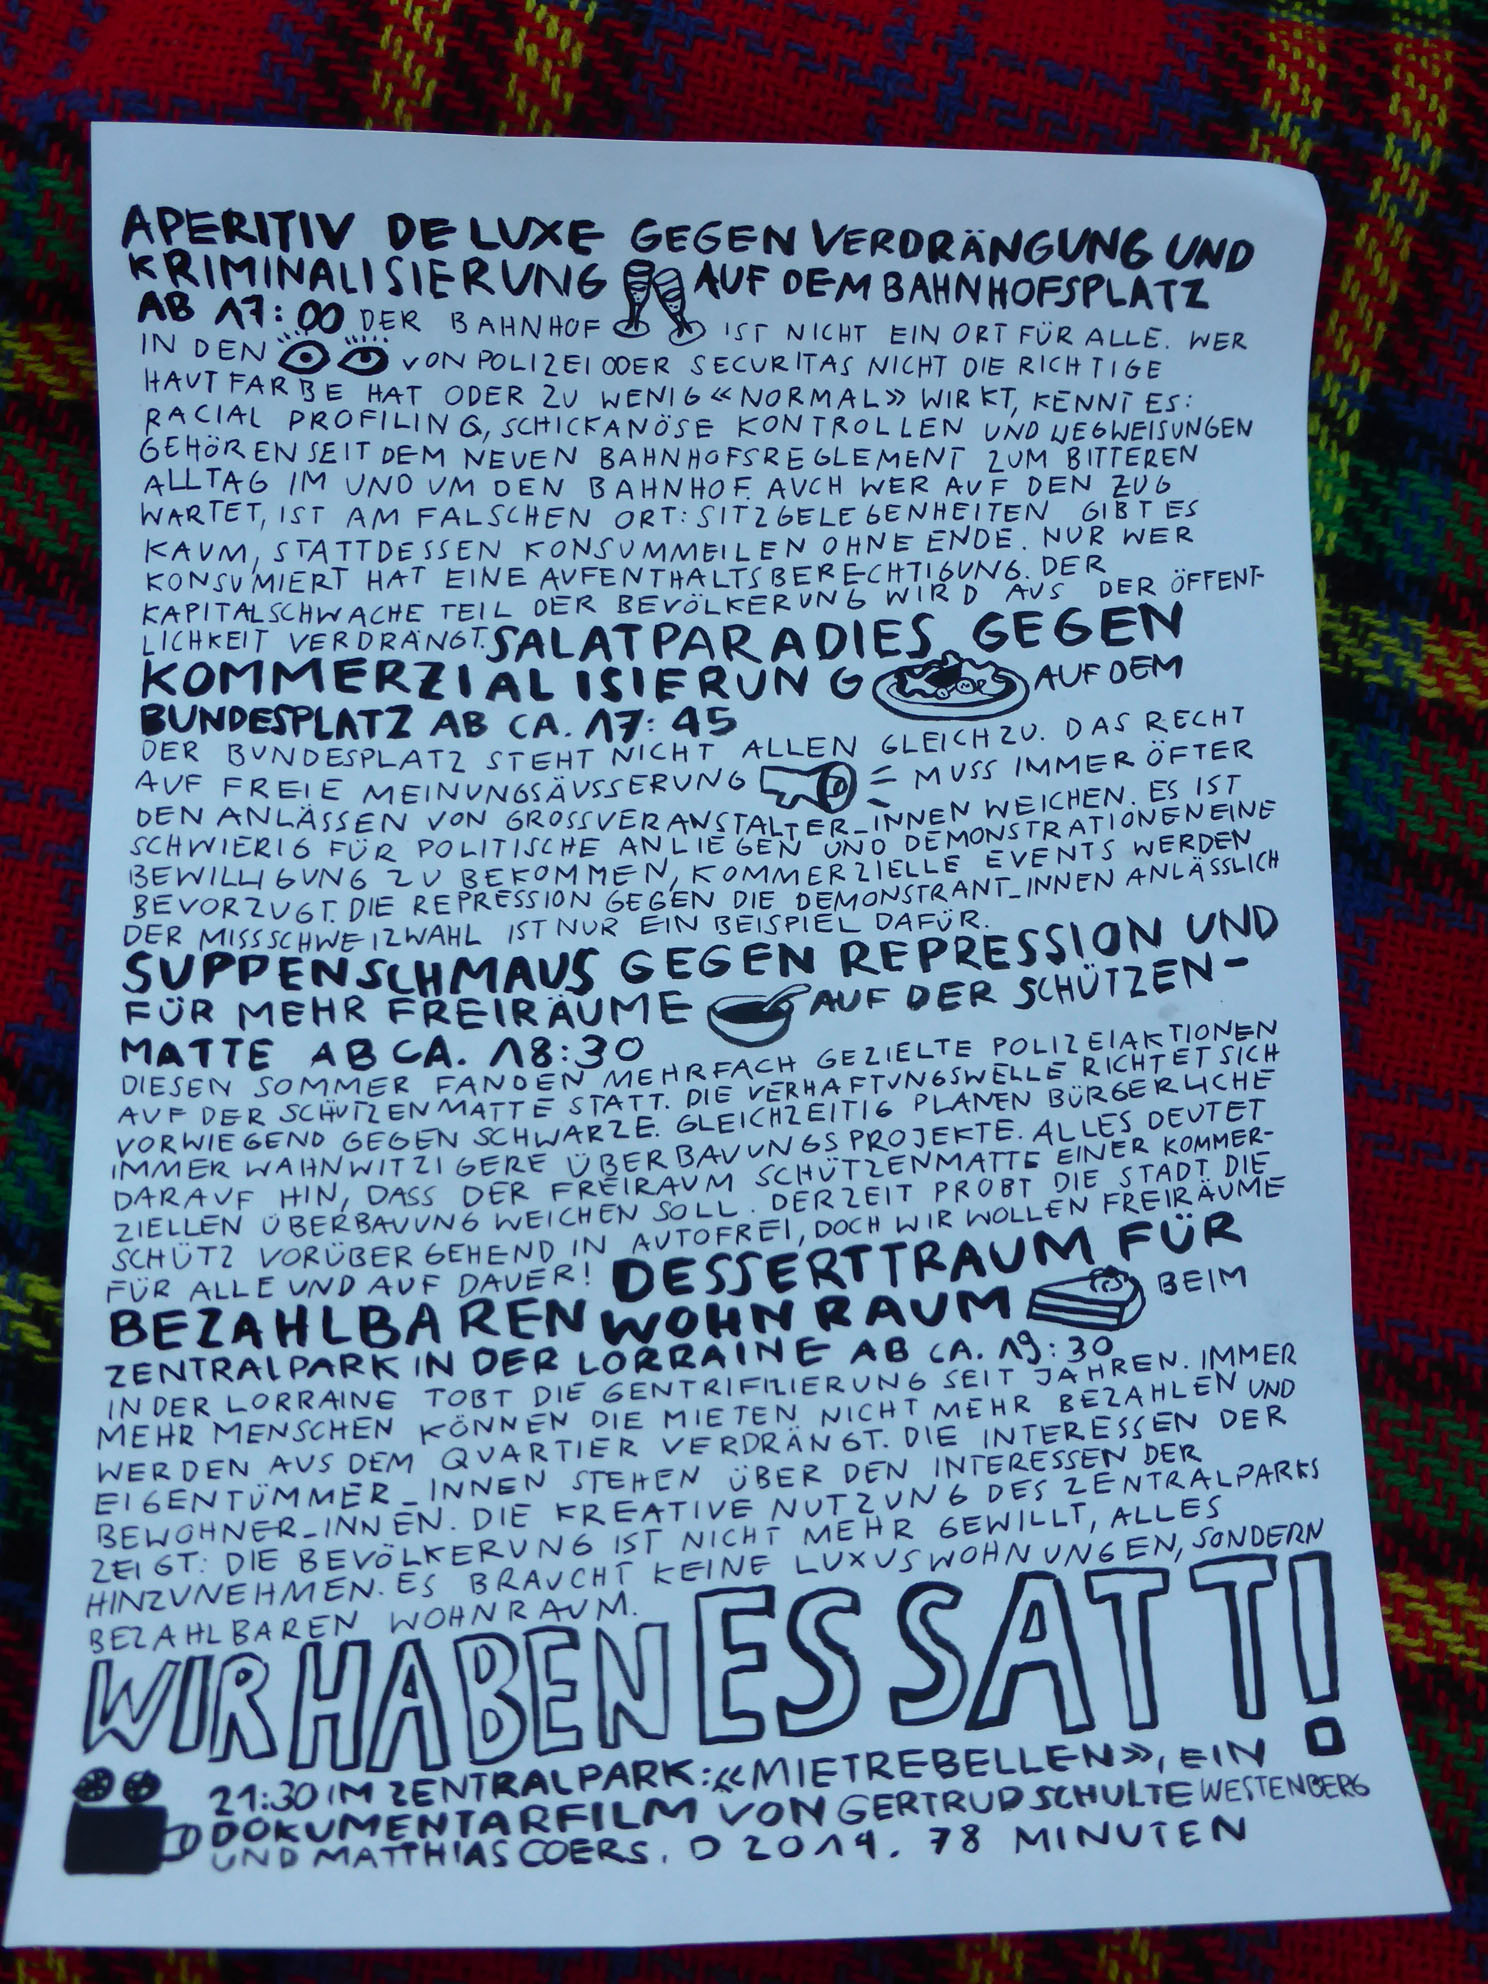 APERITIV DE LUXE GEGEN VERDRÄNGUNG UND
KRIMINALISIERUNG AUF DEM BAHNHOFSPLATZ
AB 17:00 DER BAHNHOF IST NICHT EIN ORT FÜR ALLE. WER
IN DEN VON POLIZEI ODER SECURITAS NICHT DIE RICHTIGE
HAUTFARBE HAT ODER ZU WENIG «NORMAL» WIRKT, KENNT ES:
RACIAL PROFILING, SCHICKANÖSE KONTROLLEN UND WEGWEISUNGEN
GEHÖREN SEIT DEM NEUEN BAHNHOFSREGLEMENT ZUM BITTEREN
ALLTAG IM UND UM DEN BAHNHOF. AUCH WER AUF DEN ZUG
WARTET, IST AM FALSCHEN ORT: SITZGELEGENHEITEN GIBT ES
KAUM, STATTDESSEN KONSUMMEILEN OHNE ENDE. NUR WER
KONSUMIERT HAT EINE AUFENTHALTSBERECHTIGUNG. DER
KAPITALSCHWACHE TEIL DER BEVÖLKERUNG WIRD AUS DER ÖFFENT-
LICHKEIT VERDRÄNGT. SALATPARADIES GEGEN
KOMMERZIALISIERUNG AUF DEM
BUNDESPLATZ AB CA. 17:45
DER BUNDESPLATZ STEHT NICHT ALLEN GLEICH ZU. DAS RECHT
AUF FREIE MEINUNGSÄUSSERUNG MUSS IMMER ÖFTER
DEN ANLÄSSEN VON GROSSVERANSTALTER_INNEN WEICHEN. ES IST
SCHWIERIG FÜR POLITISCHE ANLIEGEN UND DEMONSTRATIONEN EINE
BEWILLIGUNG ZU BEKOMMEN, KOMMERZIELLE EVENTS WERDEN
BEVORZUGT. DIE REPRESSION GEGEN DIE DEMONSTRANT_INNEN ANLÄSSLICH
DER MISSSCHWEIZWAHL IST NUR EIN BEISPIEL DAFÜR.
SUPPENSCHMAUS GEGEN REPRESSION UND
FÜR MEHR FREIRÄUME AUF DER SCHÜTZEN-
MATTE AB CA. 18:30
DIESEN SOMMER FANDEN MEHRFACH GEZIELTE POLIZEIAKTIONEN
AUF DER SCHÜTZENMATTE STATT. DIE VERHAFTUNGSWELLE RICHTET SICH
VORWIEGEND GEGEN SCHWARZE. GLEICHZEITIG PLANEN BÜRGERLICHE
IMMER WAHNWITZIGERE ÜBERBAUUNGSPROJEKTE. ALLES DEUTET
DARAUF HIN, DASS DER FREIRAUM SCHÜTZENMATTE EINER KOMMER-
ZIELLEN ÜBERBAUUNG WEICHEN SOLL. DERZEIT PROBT DIE STADT DIE
SCHÜTZ VORÜBERGEHEND IN AUTOFREI, DOCH WIR WOLLEN FREIRÄUME
FÜR ALLE UND AUF DAUER! DESSERTTRAUM FÜR
BEZAHLBAREN WOHNRAUM BEIM
ZENTRALPARK IN DER LORRAINE AB CA. 19:30
IN DER LORRAINE TOBT DIE GENTRIFIZIERUNG SEIT JAHREN. IMMER
MEHR MENSCHEN KÖNNEN DIE MIETEN NICHT MEHR BEZAHLEN UND
WERDEN AUS DEM QUARTIER VERDRÄNGT. DIE INTERESSEN DER
EIGENTÜMMER_INNEN STEHEN ÜBER DEN INTERESSEN DER
BEWOHNER_INNEN. DIE KREATIVE NUTZUNG DES ZENTRALPARKS
ZEIGT: DIE BEVÖLKERUNG IST NICHT MEHR GEWILLT, ALLES
HINZUNEHMEN. ES BRAUCHT KEINE LUXUSWOHNUNGEN, SONDERN
BEZAHLBAREN WOHNRAUM.
WIR HABEN ES SATT!
21:30 IM ZENTRALPARK: «MIETREBELLEN», EIN
DOKUMENTARFILM VON GERTRUD SCHULTE WESTENBERG
UND MATTHIAS COERS. D 2014. 78 MINUTEN